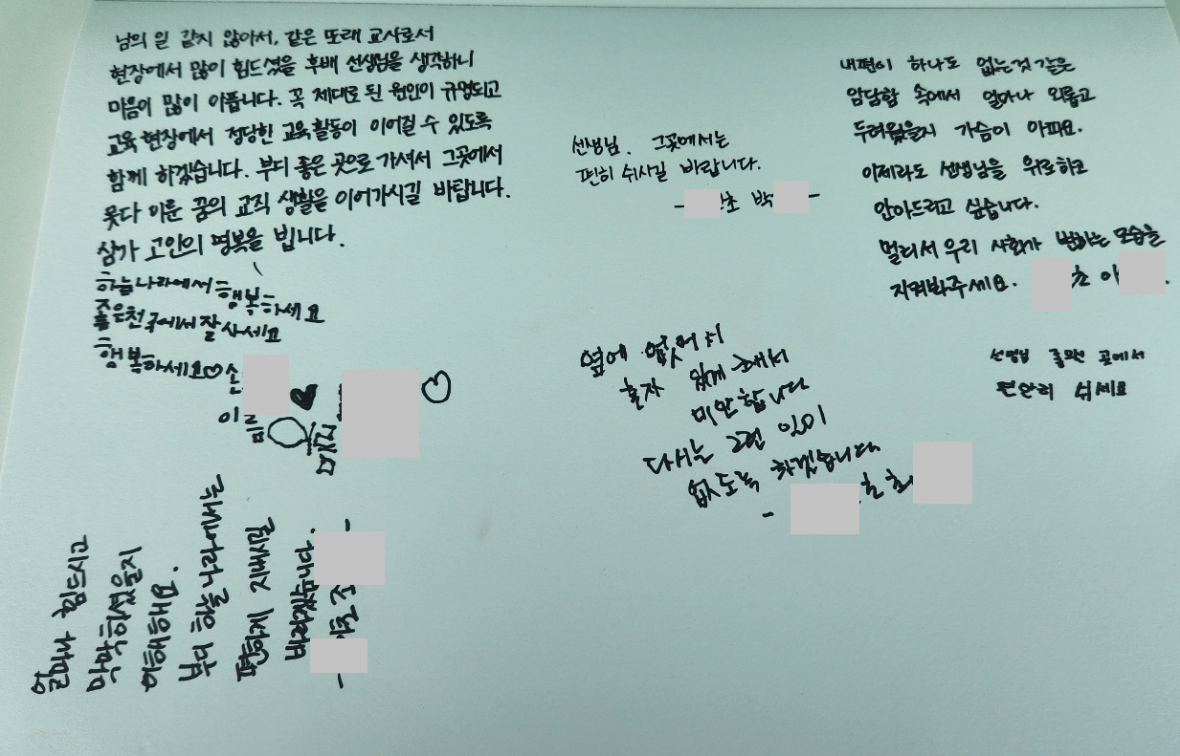 남의 일 같지 않아서, 같은 또래 교사로서
현장에서 많이 힘드셨을 후배 선생님을 생각하니
마음이 많이 아픕니다. 꼭 제대로 된 원인이 규명되고
교육 현장에서 정당한 교육 활동이 이어질 수 있도록
함께 하겠습니다. 부디 좋은 곳으로 가셔서 그곳에서
못다 이룬 꿈의 교직 생활을 이어가시길 바랍니다.
삼가 고인의 명복을 빕니다.
하늘나라에서 행복하세요
좋은천국에서 잘사세요
행복하세요♡
선생님. 그곳에서는
편히 쉬시길 바랍니다.
- 초 박 -
내편이 하나도 없는것 같은
암담함 속에서 얼마나 외롭고
두려웠을지 가슴이 아파요.
이제라도 선생님을 위로하고
안아드리고 싶습니다.
멀리서 우리 사회가 변하는 모습을
지켜봐주세요. 초 이 .
옆에 없어서
혼자 있게 해서
미안합니다
다시는 그런 일이
없도록 하겠습니다
-
선생님 좋은 곳에서
편안히 쉬세요
얼마나 힘드시고